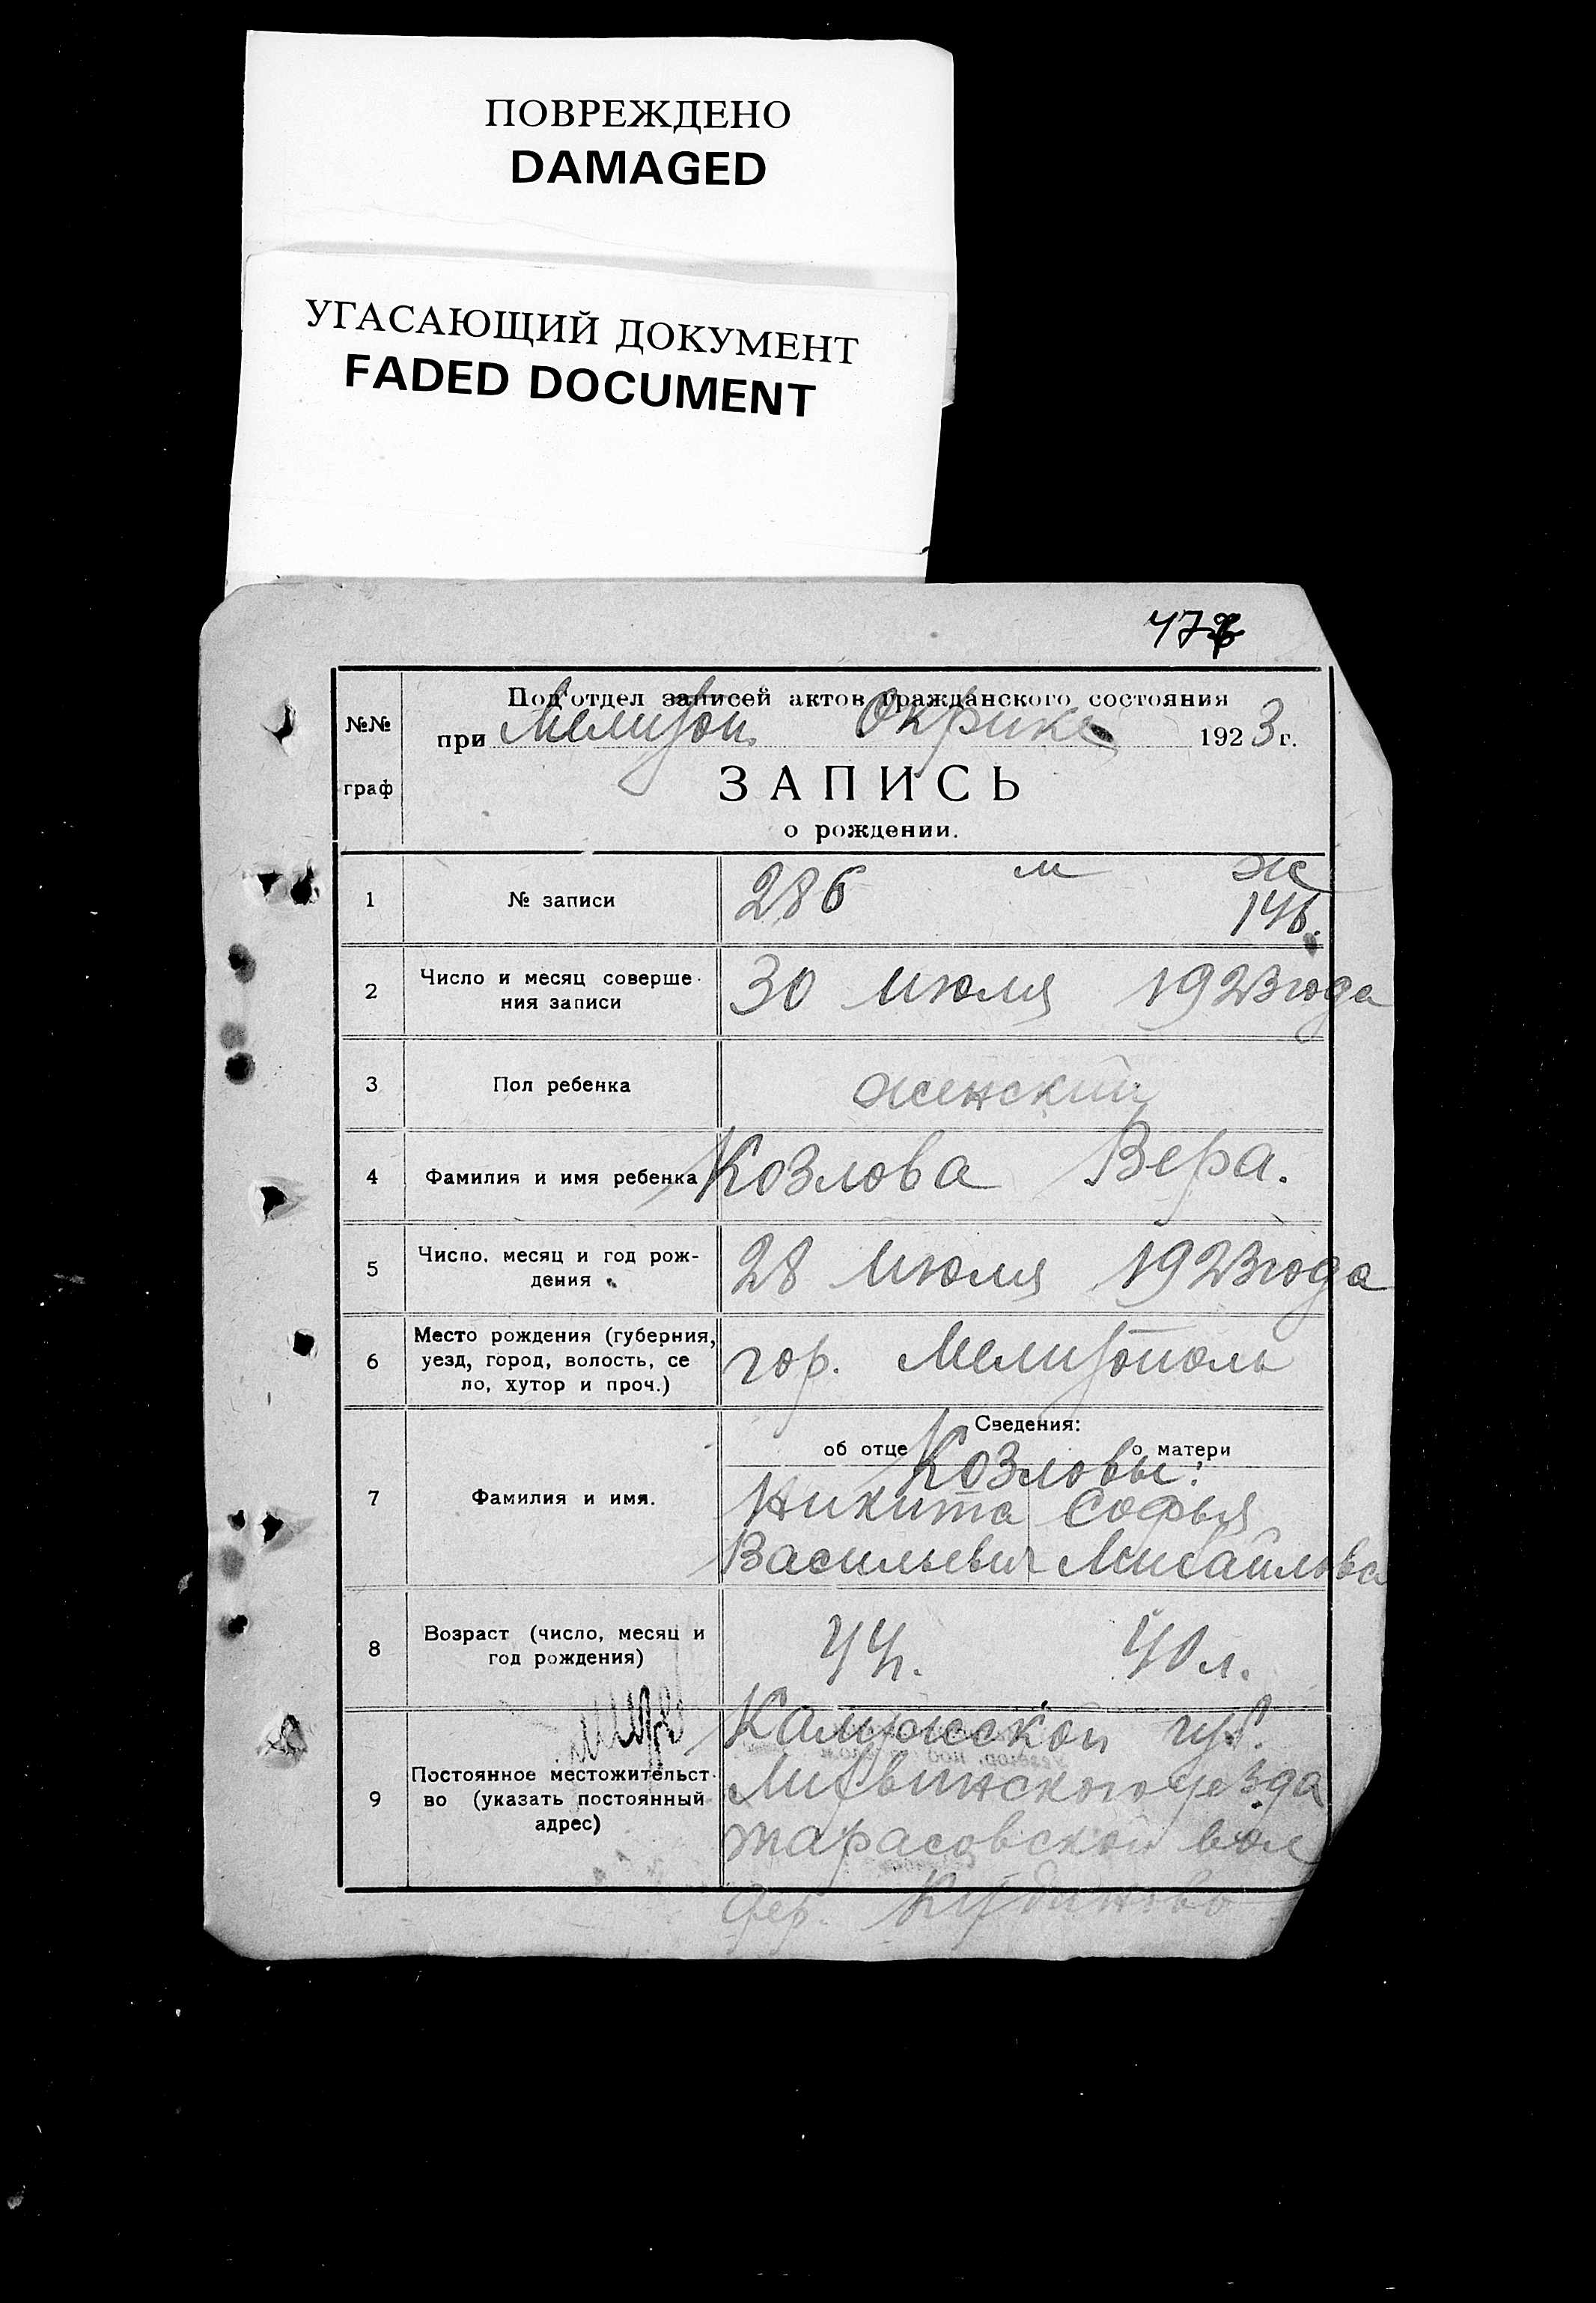 ПОВРЕЖДЕНО
DAMAGED
УГАСАЮЩИЙ ДОКУМЕНТ
FADED DOCUMENT
№№ граф
Под'отдел записей актов гражданского состояния
при Мелитоп. Окрике 1923 г.
ЗАПИСЬ
о рождении.
1 № записи 286 м ж
146.
2 Число и месяц соверше-
ния записи 30 июля 1923 года
3 Пол ребенка женский
4 Фамилия и имя ребенка Козлова Вера.
5 Число, месяц и год рож-
дения 28 июля 1923 года
6 Место рождения (губерния,
уезд, город, волость, се
ло, хутор и проч.) гор. Мелитополь
Сведения:
об отце о матери
Козловы:
7 Фамилия и имя. Никита Софья
Васильевич Михайлова
8 Возраст (число, месяц и
год рождения) 44 г. 40 л.
Калужской губ.
9 Постоянное местожительст-
во (указать постоянный
адрес) Лихвинского уезда
Тарасовской вол
дер.